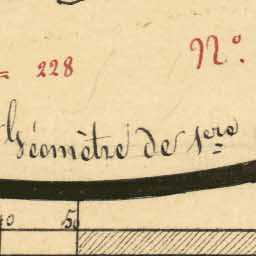 = 228 N°.
Géomètre de 1ere
40 50